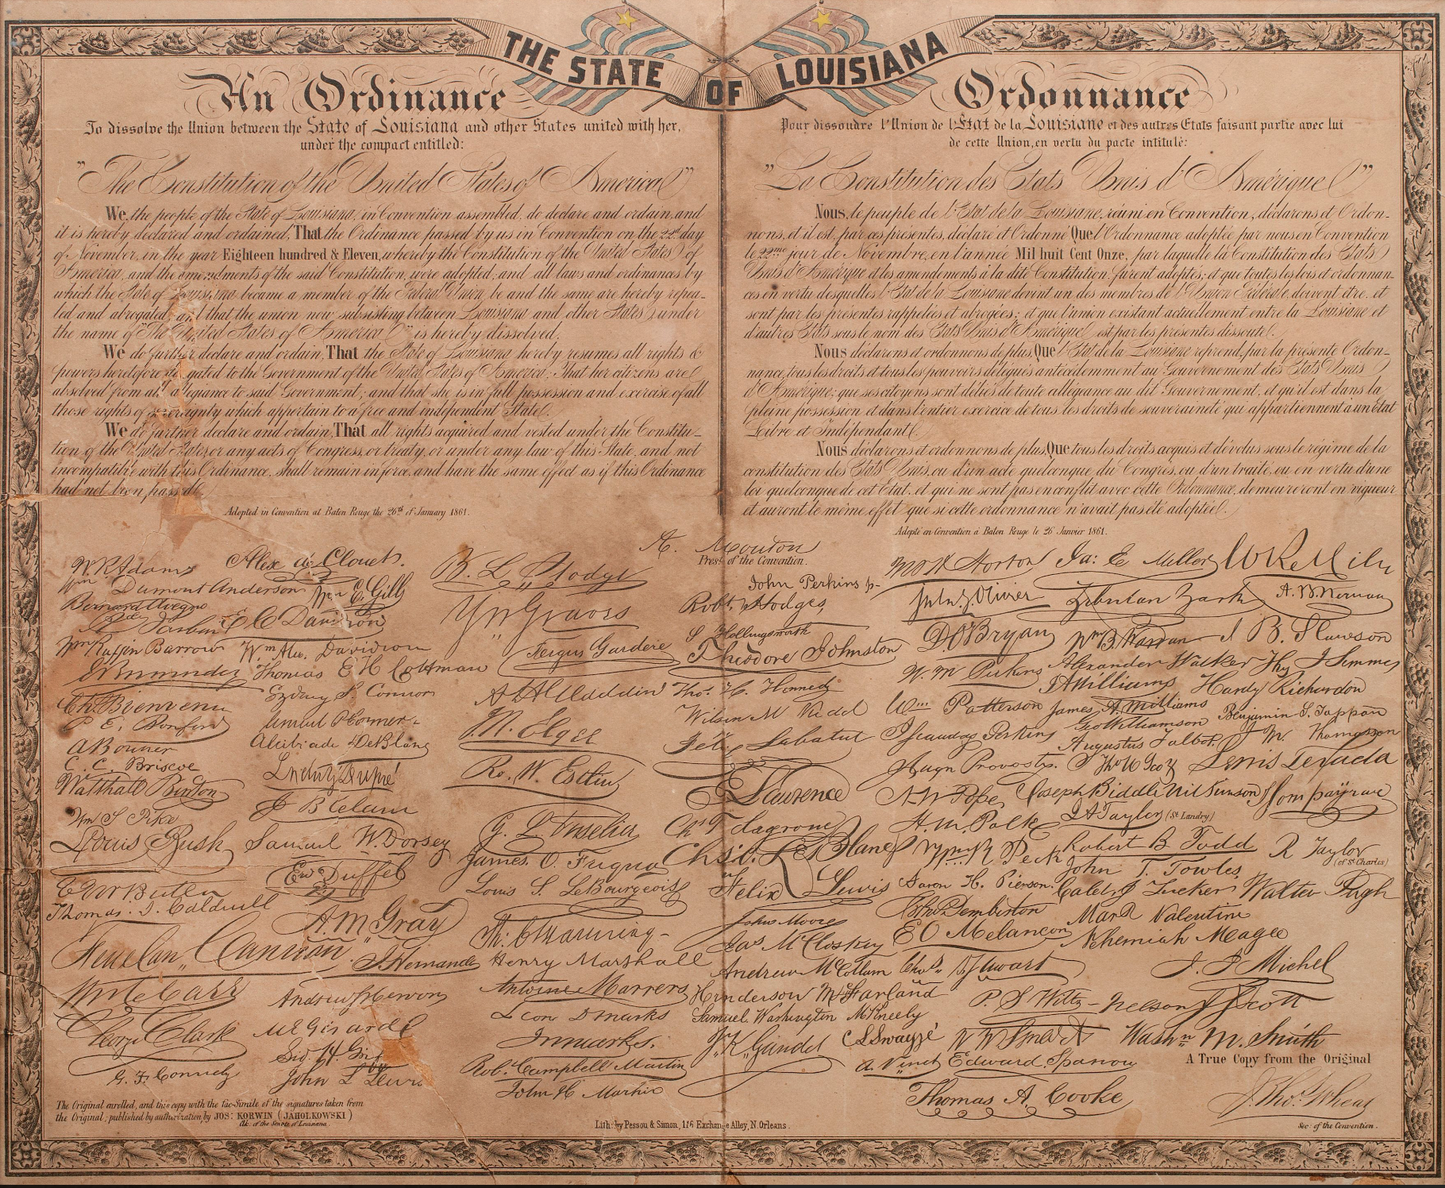 THE STATE OF LOUISIANA
An Ordinance
To dissolve the Union between the State of Louisiana and other States united with her,
under the compact entitled:
"The Constitution of the United States of America"
We, the people of the State of Louisiana, in Convention assembled, do declare and ordain, and
it is hereby declared and ordained, That the Ordinance passed by us in Convention on the 22d day
of November, in the year Eighteen hundred & Eleven, whereby the Constitution of the United States of
America, and the amendments of the said Constitution, were adopted, and all laws and ordinances by
which the State of Louisiana became a member of the Federal Union, be and the same are hereby repea-
led and abrogated, and that the union now subsisting between Louisiana and other States, under
the name of "The United States of America" is hereby dissolved.
We do further declare and ordain, That the State of Louisiana hereby resumes all rights &
powers heretofore delegated to the Government of the United States of America; That her citizens are
absolved from allegiance to said Government; and that she is in full possession and exercise of all
those rights of sovereignty which appertain to a free and independent State.
We do further declare and ordain, That all rights acquired and vested under the Constitu-
tion of the United States, or any acts of Congress, or treaty, or under any law of this State, and not
incompatible with this Ordinance, shall remain in force, and have the same effect as if this Ordinance
had not been passed.
Adopted in Convention at Baton Rouge the 26th of January 1861.
Ordonnance
Pour dissoudre l'Union de l'Etat de la Louisiane et des autres Etats faisant partie avec lui
de cette Union, en vertu du pacte intitulé:
"La Constitution des Etats Unis d'Amérique"
Nous, le peuple de l'Etat de la Louisiane, réuni en Convention, déclarons et Ordon-
nons, et il est, par ces présentes, déclaré et Ordonné Que l'Ordonnance adoptée par nous en Convention
le 22me jour de Novembre, en l'année Mil huit Cent Onze, par laquelle la Constitution des Etats
Unis d'Amérique et les amendements à la dite Constitution, furent adoptés, et que toutes les lois et ordonnan-
ces en vertu desquelles l'Etat de la Louisiane devint un des membres de l'Union Fédérale, devront être, et
sont par les présentes rappelées et abrogées; et que l'union existant actuellement entre la Louisiane et
d'autres Etats sous le nom des "Etats Unis d'Amérique" est par les présentes dissoute.
Nous déclarons et ordonnons de plus, Que l'Etat de la Louisiane reprend, par la présente Ordon-
nance, tous les droits et tous les pouvoirs délégués antécédemment au Gouvernement des Etats Unis
d'Amérique; que ses citoyens sont déliés de toute allégeance au dit Gouvernement, et qu'il est dans la
pleine possession et dans l'entier exercice de tous les droits de souveraineté qui appartiennent à un Etat
Libre et Indépendant.
Nous déclarons et ordonnons de plus, Que tous les droits acquis et dévolus sous le régime de la
constitution des Etats Unis, ou d'un acte quelconque du Congrès, ou d'un traité, ou en vertu d'une
loi quelconque de cet Etat, et qui ne sont pas en conflit avec cette Ordonnance, demeureront en vigueur
et auront le même effet que si cette ordonnance n'avait pas été adoptée.
Adopté en Convention à Baton Rouge le 26 Janvier 1861.
A. Mouton
Prest. of the Convention.
W. R. Adams
Wm Dumont Anderson
Bernard Avegno
Wm Ruffin Barrow
Ch. Bienvenu
P. E. Bonford
A Bonner
C. C. Briscoe
Walthall Burton
Wm S Pike
Louis Bush
Thomas J. Caldwell
New Con Cannon
Wm C Carr
George Clark
G. F. Connely
Alex de Clouet
Wm E Gill
T C Davidson
Thomas E H Cottman
Sydney S Connor
Alcibiade DeBlanc
Samuel W. Dorsey
Ed Duffel
A. M Gray
J. Hernandez
Andrew J Herron
M E Girard
John L Lewis
B. L. Hodge
Y W Graves
Fergus Gardere
J. K. Elgee
Ro. W. Estlin
James O. Fuqua
Louis S. LeBourgeois
Henry Marshall
Antoine Marrero
Leon D Marks
Robt Campbell Martin
John H Martin
John Perkins jr
Robt. W Hodges
S Hollingsworth
Theodore Johnston
Thos. H. Kennedy
Felix Labatut
E Lawrence
Felix Lewis
John Moore
Jas McCloskey
Andrew McCollam
Henderson McFarland
Samuel Washington McNeely
J. K Gaudet
C L Swayzé
W R Miles
A. B. Norman
D O'Bryan
Wm Patterson
Hugh Provosty
A. W Pope
H. M. Polk
Wm R Peck
Aaron H. Pierson
E O Melancon
Wm B Warren
J B. Slawson
Alexander Walker
J. A. Williams
Hardy Richardson
James A Williams
Geo Williamson
Benjamin S. Tappan
Augustus Talbot
Thos W Scott
Lewis Texada
Joseph Biddle Wilkinson
J. A Taylor (St Landry)
Robert B. Todd
R Taylor (of St Charles)
John T. Towles
Caleb J Tucker
Walter Pugh
Mark Valentine
Nehemiah Magee
J. J Michel
P. S Wiltz
Nelson J Scott
Washn M. Smith
Edward Sparrow
Thomas A. Cooke
A True Copy from the Original
J. Thos. Wheat
Sec: of the Convention.
The Original enrolled, and this copy with the fac-simile of the signatures taken from
the Original, published by authorization by JOS: KORWIN (JAHOLKOWSKI)
Lith: by Pessou & Simon, 116 Exchange Alley, N. Orleans.